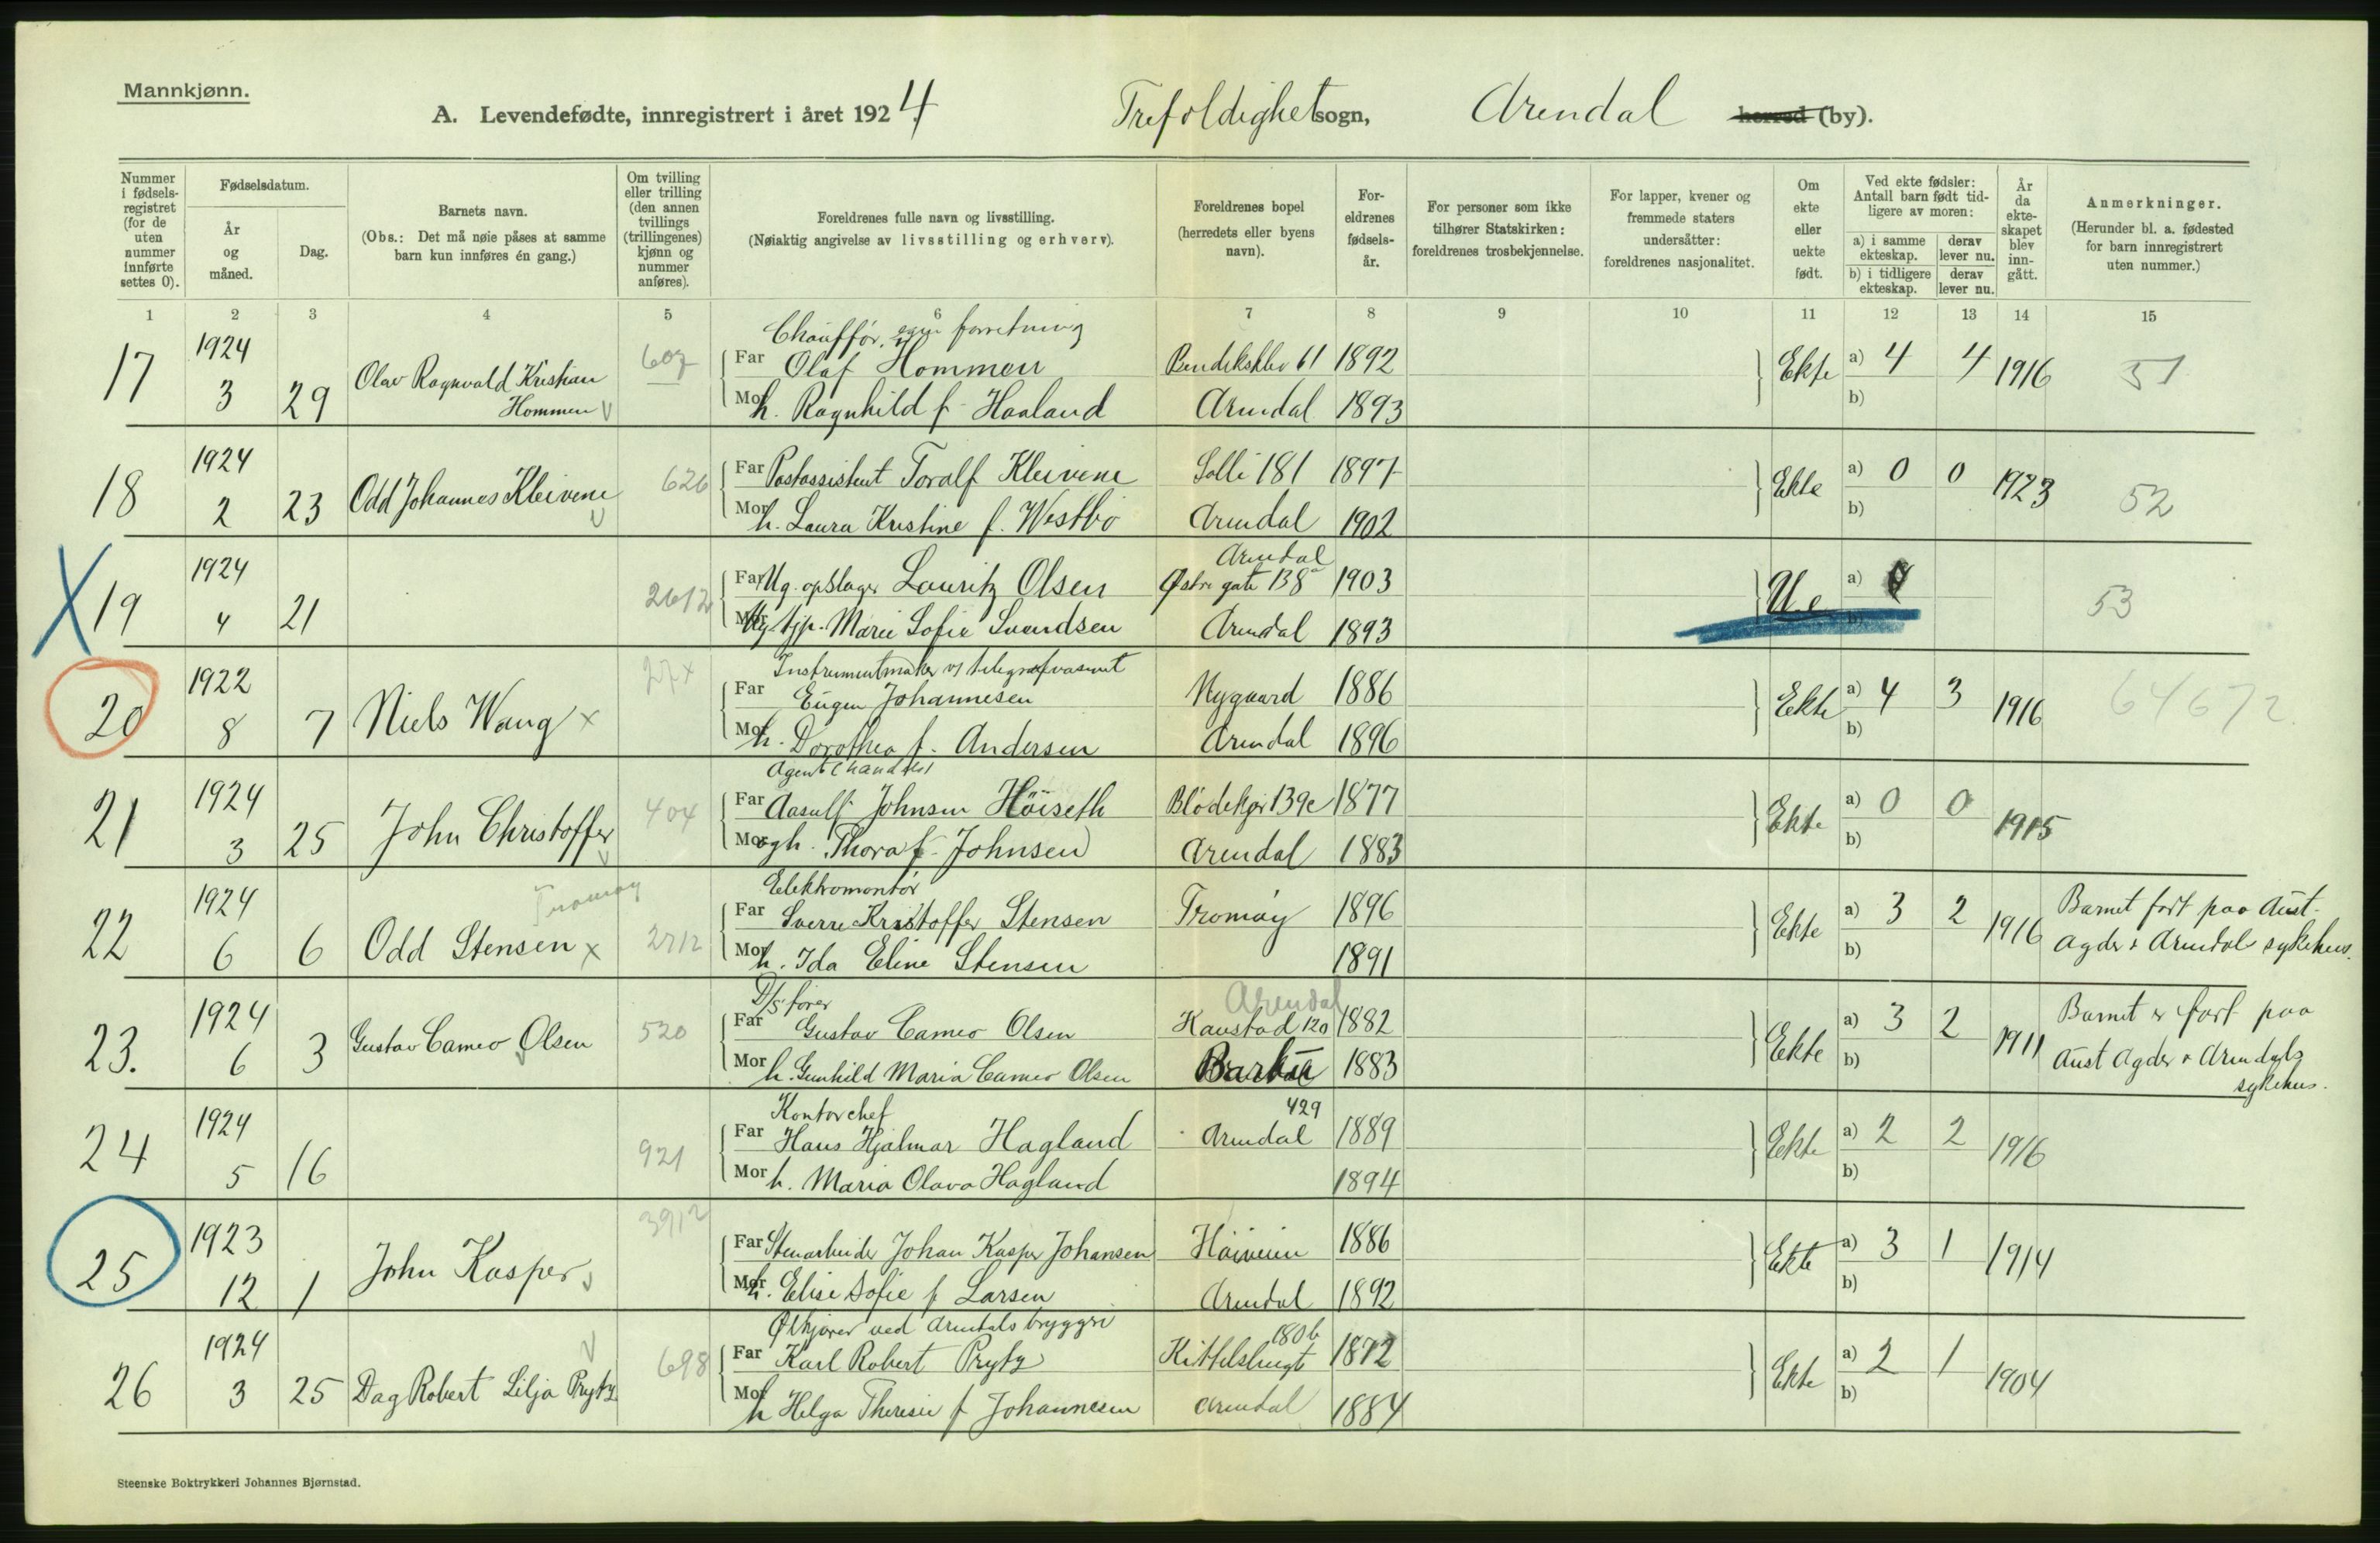 Mannkjønn.
A. Levendefødte, innregistrert i året 1924. Trefoldighet sogn, Arendal herred (by).
Nummer i fødsels-registret (for de uten nummer innførte settes 0).
Fødselsdatum.
År og måned.
Dag.
Barnets navn.
(Obs.: Det må nøie påses at samme barn kun innføres én gang.)
Om tvilling eller trilling (den annen tvillings (trillingenes) kjønn og nummer anføres).
Foreldrenes fulle navn og livsstilling.
(Nøiaktig angivelse av livsstilling og erhverv).
Foreldrenes bopel (herredets eller byens navn).
For-eldrenes fødsels-år.
For personer som ikke tilhører Statskirken: foreldrenes trosbekjennelse.
For lapper, kvener og fremmede staters undersåtter: foreldrenes nasjonalitet.
Om ekte eller uekte født.
Ved ekte fødsler: Antall barn født tid-ligere av moren:
a) i samme ekteskap. derav lever nu.
b) i tidligere ekteskap. derav lever nu.
År da ekte-skapet blev inn-gått.
Anmerkninger.
(Herunder bl. a. fødested for barn innregistrert uten nummer.)
1 2 3 4 5 6 7 8 9 10 11 12 13 14 15
Chauffør, egen forretning
17 1924 Olav Ragnvald Kristian 607 Far Olaf Hommen Bendiksklev 61 1892 Ekte a) 4 4 1916 51
3 29 Hommen Mor h. Ragnhild f. Haaland Arendal 1893 b)
18 1924 Odd Johannes Kleivene 626 Far Postassistent Toralf Kleivene Solli 181 1897 Ekte a) 0 0 1923 52
2 23 Mor h. Laura Kristine f. Westbø Arendal 1902 b)
Arendal
19 1924 2612 Far Ug. opslager Lauritz Olsen Østre gate 138a 1903 Ue a) 53
4 21 Mor Ug. tjp. Marie Sofie Svendsen Arendal 1893 b)
Instrumentmaker v/ telegrafvæsnet
20 1922 Niels Wang x 27x Far Eugen Johannesen Nygaard 1886 Ekte a) 4 3 1916 64672
8 7 Mor h. Dorothea f. Andersen Arendal 1896 b)
Agent (handels)
21 1924 John Christoffer 404 Far Aasulf Johnsen Høiseth Blödekjær 139c 1877 Ekte a) 0 0 1915
3 25 Mor og h. Thora f. Johnsen Arendal 1883 b)
Tromøy Elektromontør
22 1924 Odd Stensen x 2712 Far Sverre Kristoffer Stensen Tromøy 1896 Ekte a) 3 2 1916 Barnet født paa Aust-
6 6 Mor h. Ida Eline Stensen 1891 b) Agder & Arendals sykehus.
D/S fører Arendal
23. 1924 Gustav Cameo Olsen 520 Far Gustav Cameo Olsen Kaustad 120 1882 Ekte a) 3 2 1911 Barnet er født paa
6 3 Mor h. Gunhild Maria Cameo Olsen Barbu 1883 b) Aust Agder & Arendals
sykehus.
Kontorchef 429
24 1924 921 Far Hans Hjalmar Hagland Arendal 1889 Ekte a) 2 2 1916
5 16 Mor h. Maria Olava Hagland 1894 b)
25 1923 John Kasper 3912 Far Stenarbeider Johan Kasper Johansen 1886 Ekte a) 3 1 1914
12 1 Mor h. Elise Sofie f Larsen Arendal 1892 b)
Ølkjører ved Arendals bryggeri 180b
26 1924 Dag Robert Lilja Prytz 698 Far Karl Robert Prytz Kittelsbugt 1872 Ekte a) 2 1 1904
3 25 Mor h Helga Theresie f Johannesen Arendal 1884 b)
Steenske Boktrykkeri Johannes Bjørnstad.